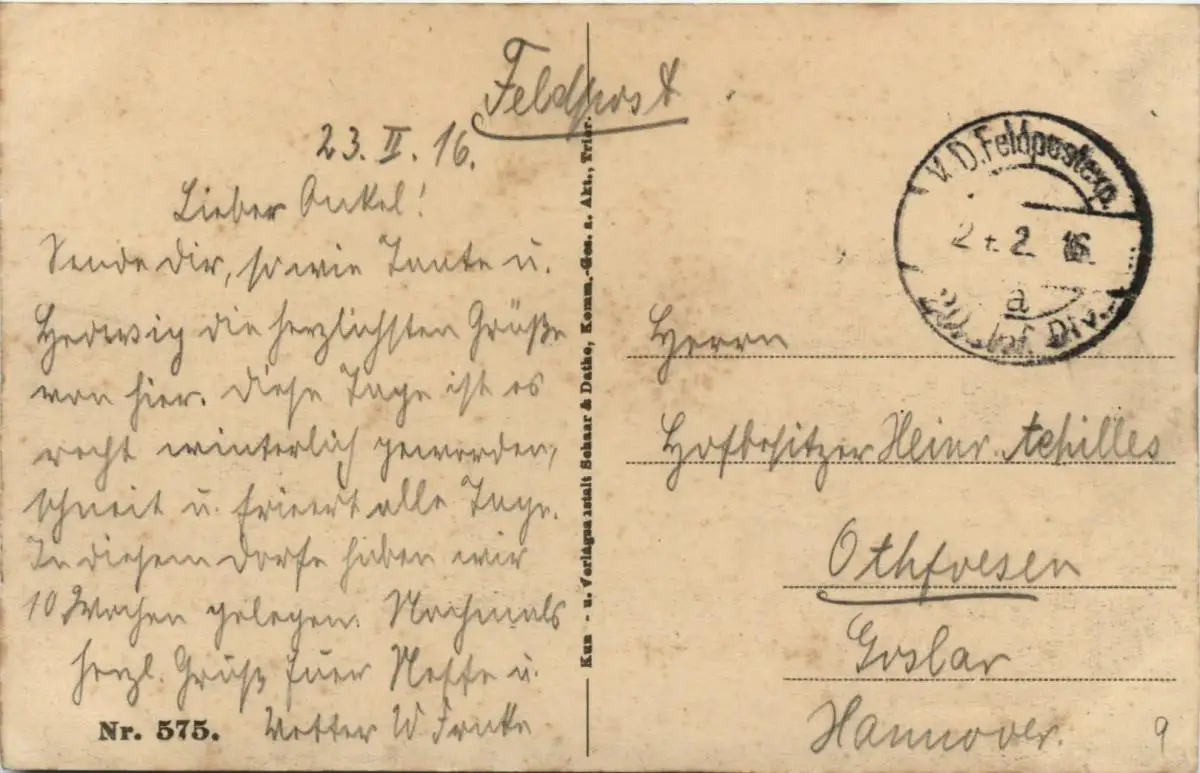 Feldpost
23. II. 16.
Lieber Onkel!
Sende dir, sowie Tante u.
Hedwig die herzlichsten Grüße
von hier. Diese Tage ist es
recht winterlich geworden,
schneit u. friert alle Tage.
In diesem Dorfe haben wir
10 Wochen gelegen. Nochmals
herzl. Gruß Euer Neffe u.
Vetter W
Nr. 575.
Kun - u. Verlagsanstalt Schaar & Dathe, Komm.-Ges. a. Akt., Trier.
K. D. Feldpostexp.
2 . 2. 16.
a
20. Inf. Div.
Herrn
Hofbesitzer Heinr. Achilles
Othfresen
Goslar
Hannover.
9